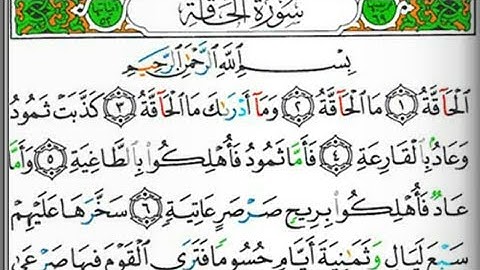 سُورَةُ الْحَاقَّةِ
بِسْمِ اللَّهِ الرَّحْمَٰنِ الرَّحِيمِ
الْحَاقَّةُ ١ مَا الْحَاقَّةُ ٢ وَمَا أَدْرَاكَ مَا الْحَاقَّةُ ٣ كَذَّبَتْ ثَمُودُ
وَعَادٌ بِالْقَارِعَةِ ٤ فَأَمَّا ثَمُودُ فَأُهْلِكُوا بِالطَّاغِيَةِ ٥ وَأَمَّا
عَادٌ فَأُهْلِكُوا بِرِيحٍ صَرْصَرٍ عَاتِيَةٍ ٦ سَخَّرَهَا عَلَيْهِمْ
سَبْعَ لَيَالٍ وَثَمَٰنِيَةَ أَيَّامٍ حُسُومًا فَتَرَى الْقَوْمَ فِيهَا صَرْعَىٰ